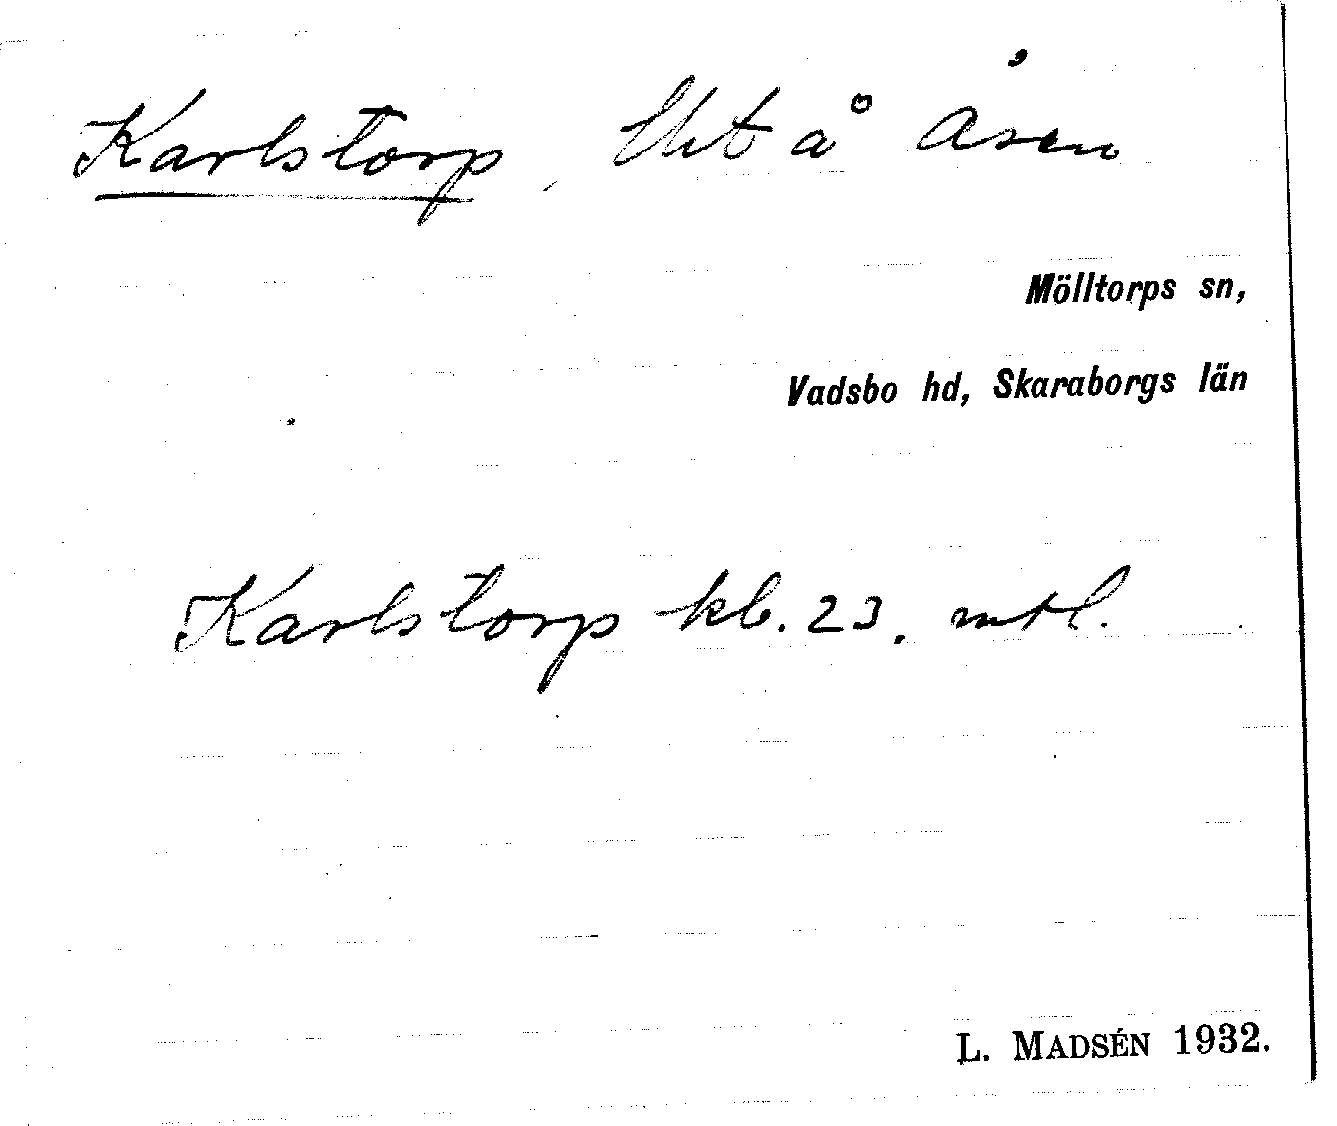 Karlstorp, lht å Åsen
Mölltorps sn,
Vadsbo hd, Skaraborgs län
Karlstorp kb. 23. mtl.
L. MADSÉN 1932.